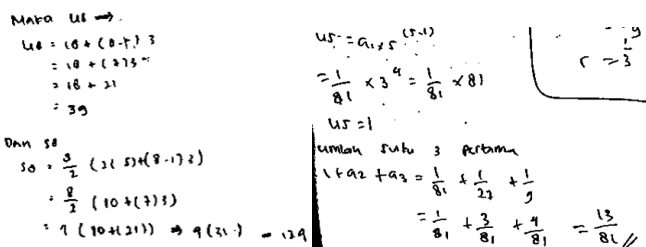 Maka U8 →
U8 = 18 + (8-1) 3
= 18 + (7) 3
= 18 + 21
= 39
Dan S8
S8 = (2( 5)+(8-1) 3)
= 8/2 (10 +(7) 3)
= (10+(21)) ⇒ (31 ) = 124
U5 = a1 x 5 (5-1)
= 1/81 x 3^4 = 1/81 x 81
U5 = 1
umlah suku 3 pertama
1 + a2 + a3 = 1/81 + 1/27 + 1/9
= 1/81 + 3/81 + 9/81 = 13/81 //
9
r = 1/3